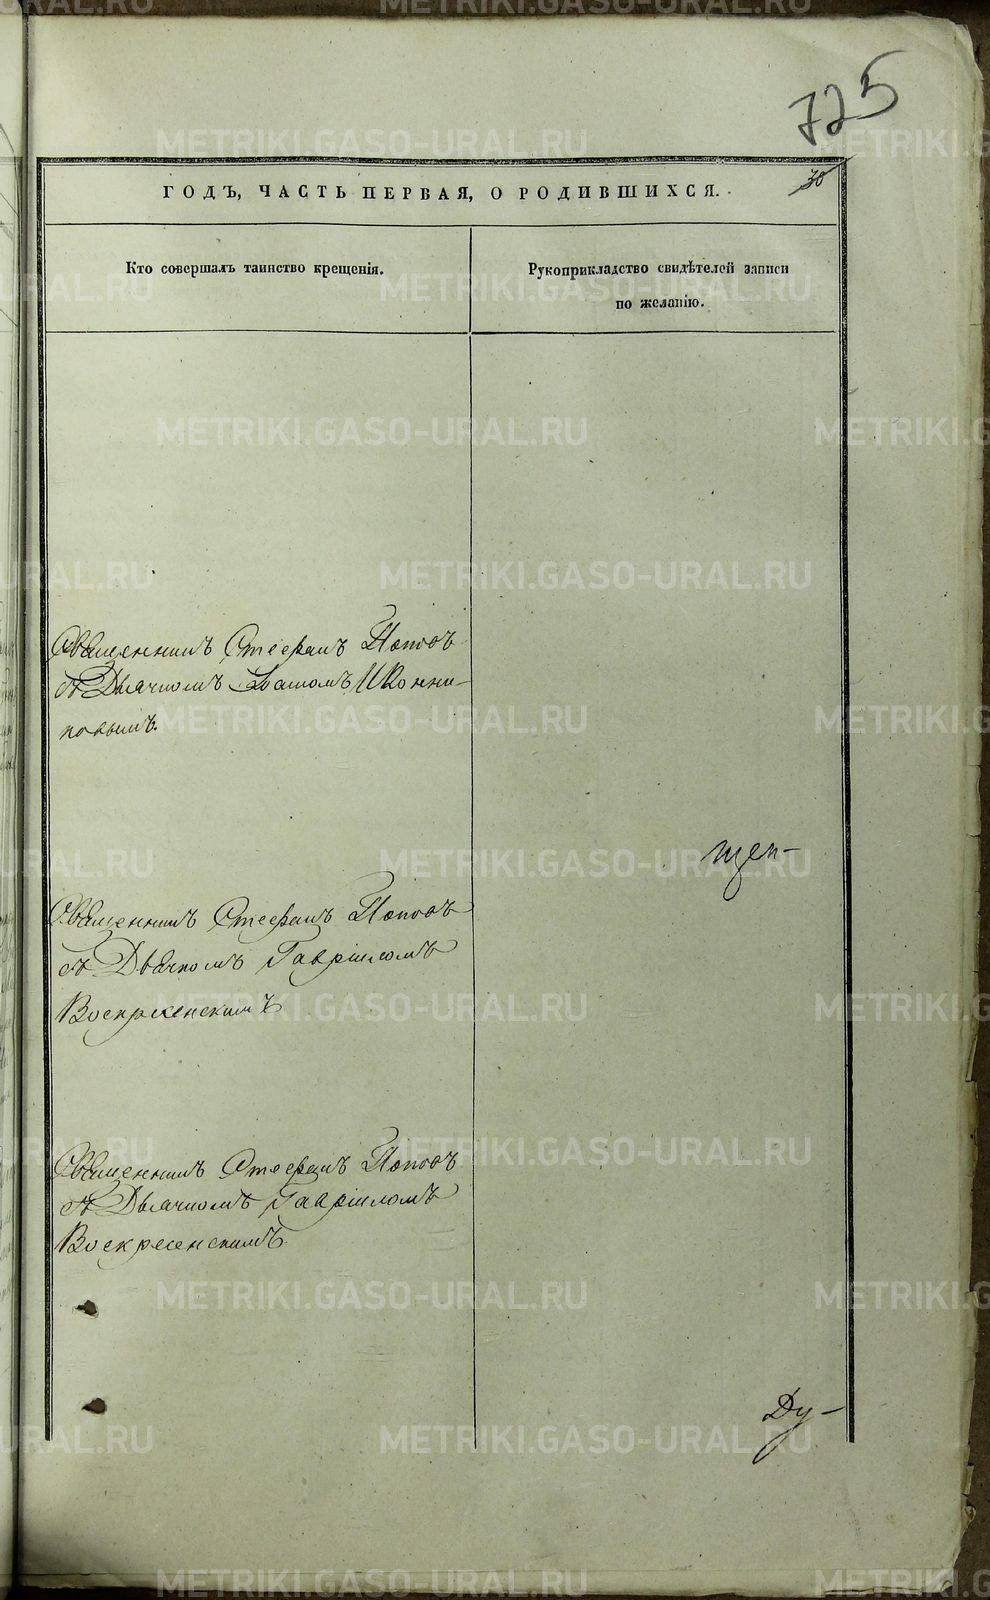 725
30
ГОДЪ, ЧАСТЬ ПЕРВАЯ, О РОДИВШИХСЯ.
Кто совершалъ таинство крещенія.
Рукоприкладство свидѣтелей записи
по желанію.
Священникъ Стефанъ Поповъ
съ Дьячкомъ Іоанномъ Иконни-
ковымъ.
щен-
Священникъ Стефанъ Поповъ
съ Дьячкомъ Гавріиломъ
Воскресенскимъ
Священникъ Стефанъ Поповъ
съ Дьячкомъ Гавріиломъ
Воскресенскимъ.
Ду-
METRIKI.GASO-URAL.RU